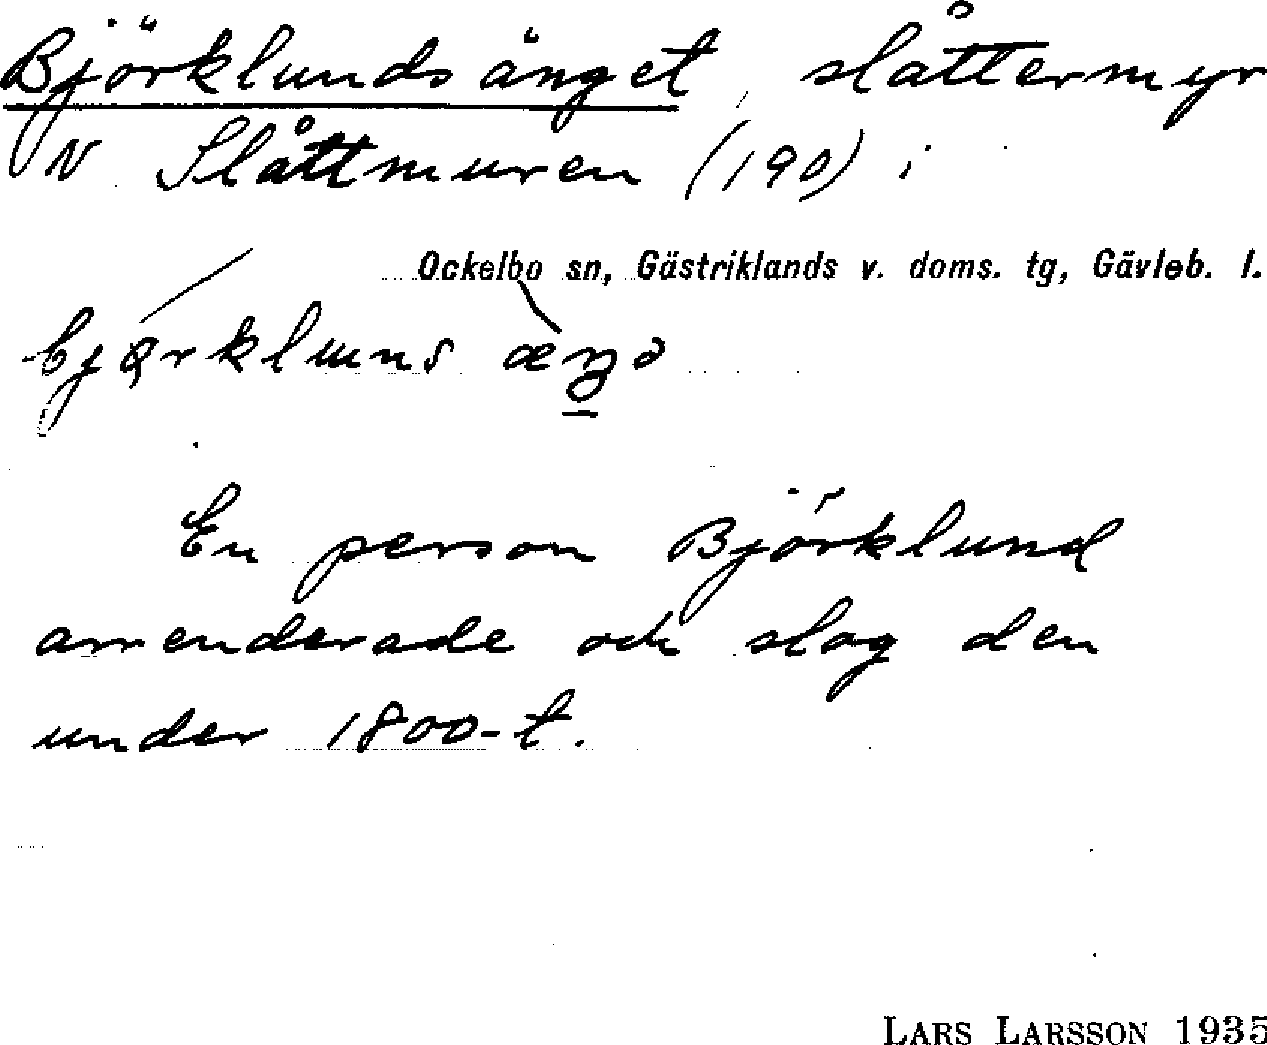 Björklundsänget, slåttermyr
N Slåttmuren (190) i
Ockelbo sn, Gästriklands v. doms. tg, Gävleb. l.
En person Björklund
arrenderade och slog den
under 1800-t.
LARS LARSSON 1935